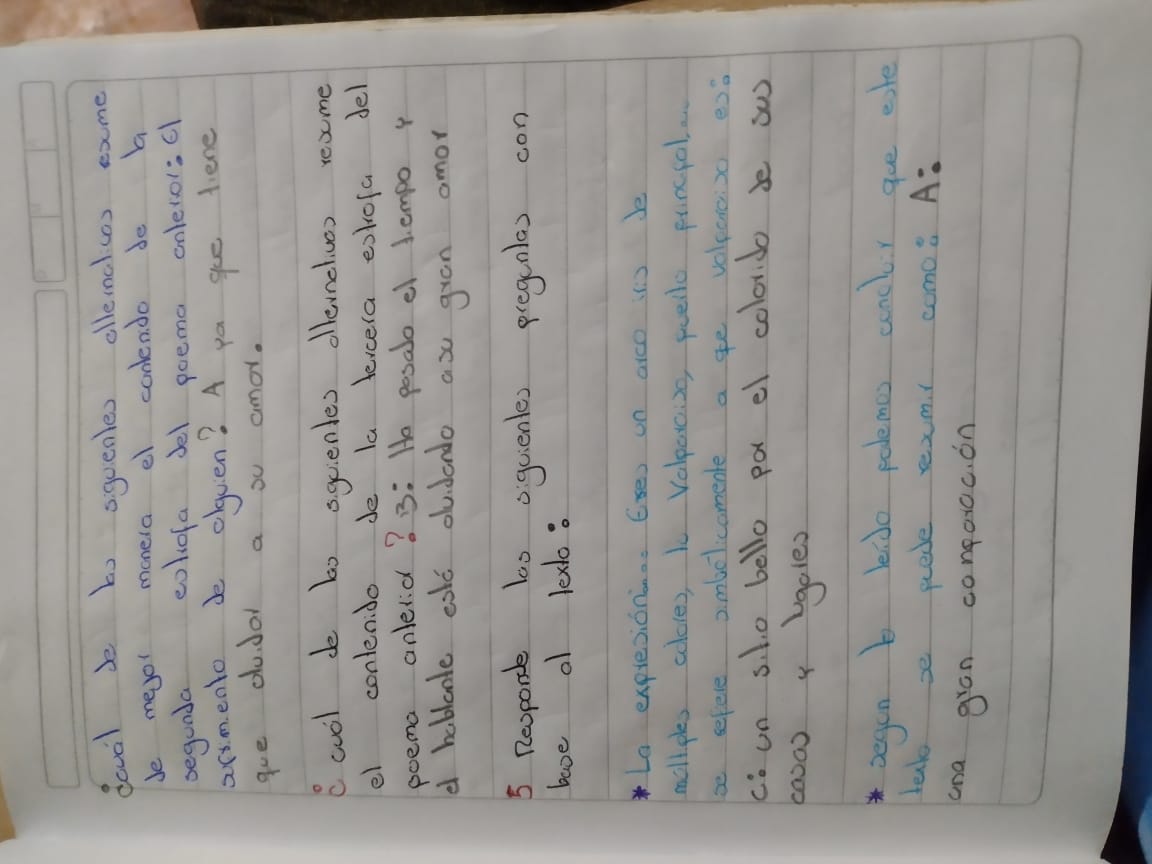 ¿cuál de las siguientes alternativas resume
de mejor manera el contenido de la
segunda estrofa del poema anterior: El
sufrimiento de alguien? A ya que tiene
que olvidar a su amor.
¿ cuál de las siguientes alternativas resume
el contenido de la tercera estrofa del
poema anterior? B: Ha pasado el tiempo y
el hablante está olvidando a su gran amor
5 Responde las siguientes preguntas con
base al texto:
* La expresión... Eres un arco iris de
múltiples colores, tu Valparaiso, puerto principal...
se refiere simbólicamente a que valparaiso es:
C: un sitio bello por el colorido de sus
casas y lugares
* segun lo leído podemos concluir que este
texto se puede resumir como: A:
una gran comparación